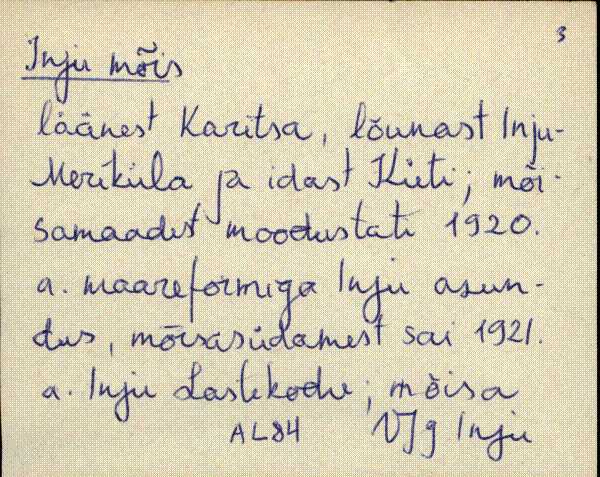 3
Inju mõis
läänest Karitsa, lõunast Inju-
Meriküla ja idast Küti; mõi-
samaadest moodustati 1920.
a. maareformiga Inju asun-
dus, mõisasüdamest sai 1921.
a. Inju Lastekodu; mõisa
AL84 VJg Inju